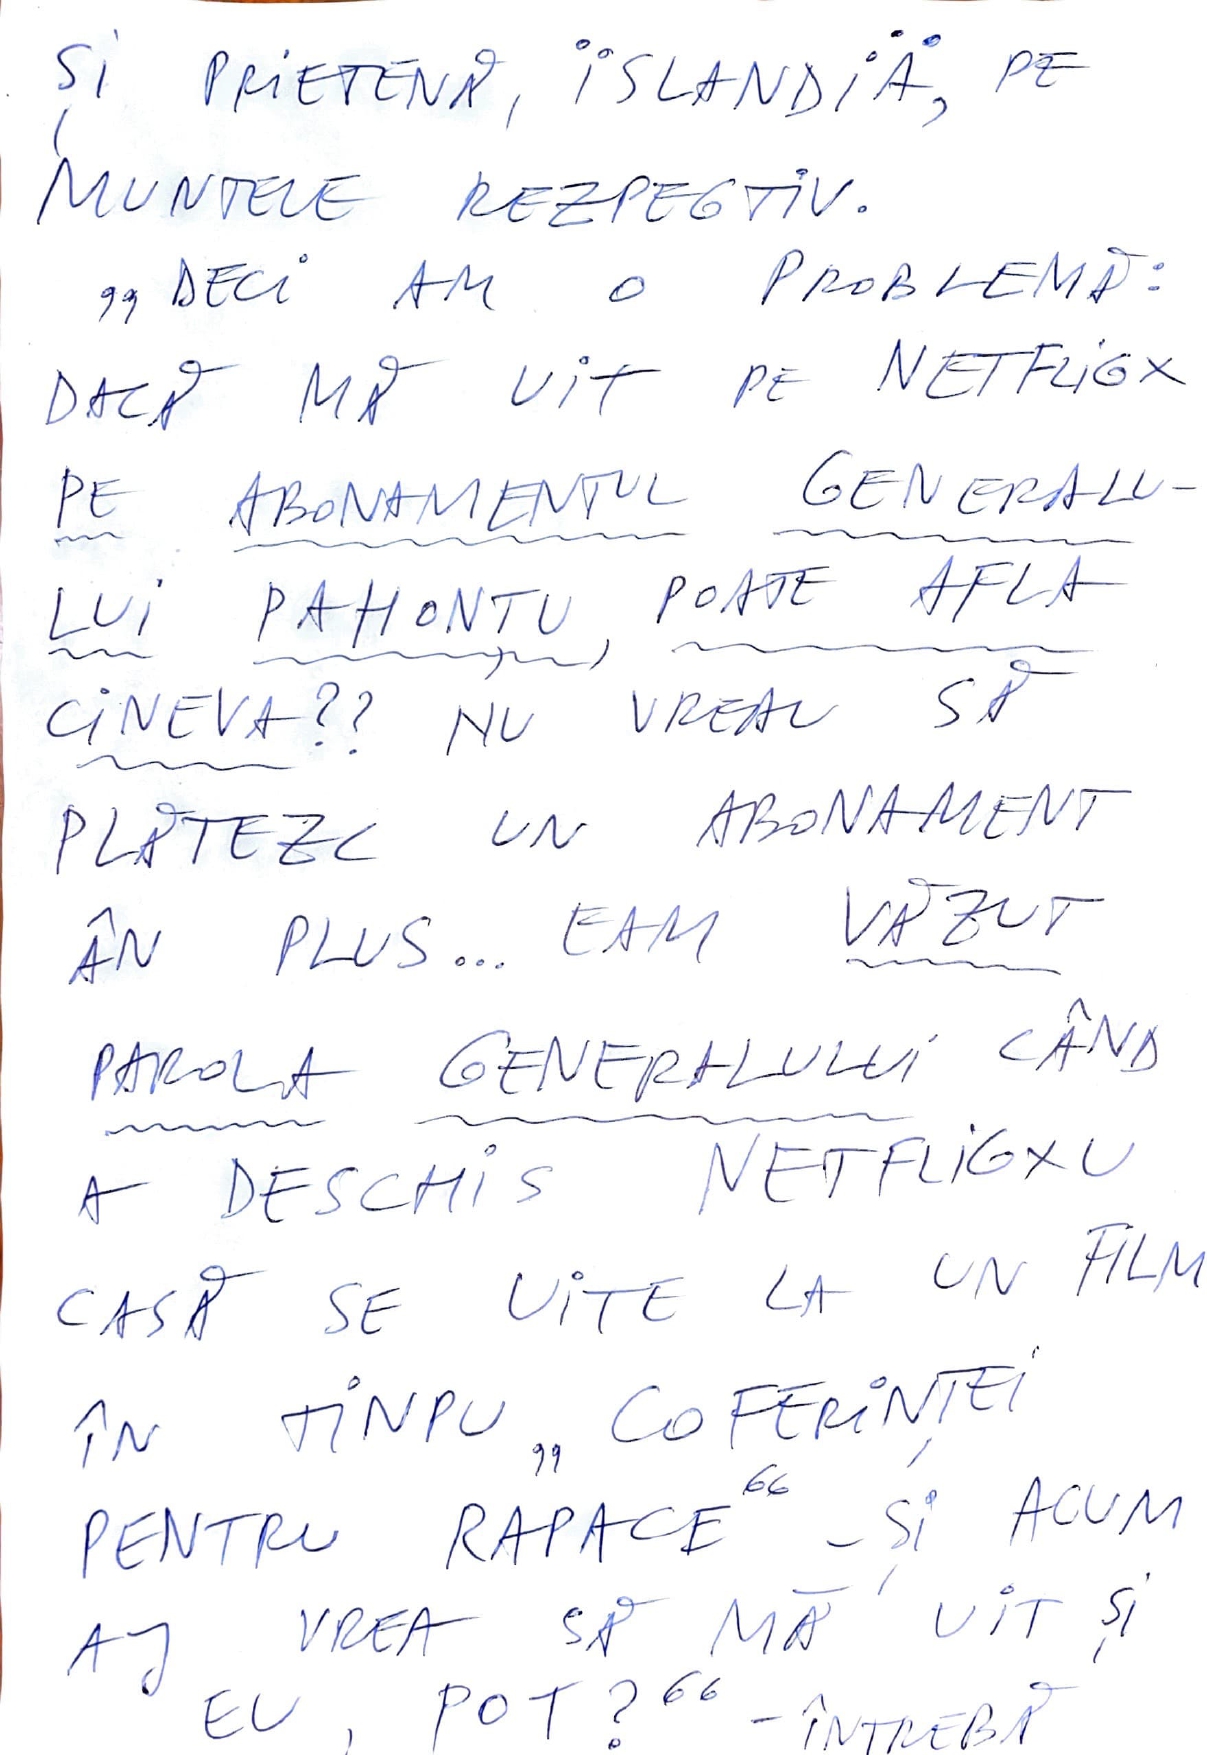 ȘI PRIETENĂ, ISLANDIĂ, PE
MUNTELE REZPEGTIV.
„DECI AM O PROBLEMĂ:
DACĂ MĂ UIT PE NETFLIGX
PE ABONAMENTUL GENERALU-
LUI PAHONȚU, POATE AFLA
CINEVA?? NU VREAU SĂ
PLĂTEZC UN ABONAMENT
ÂN PLUS... EAM VĂZUT
PAROLA GENERALULUI CÂND
A DESCHIS NETFLIGXU
CASĂ SE UITE LA UN FILM
ÎN TINPU „COFERINȚEI
PENTRU RAPACE“ - ȘI ACUM
AJ VREA SĂ MĀ UIT ȘI
EU, POT?“ - ÎNTREBĂ